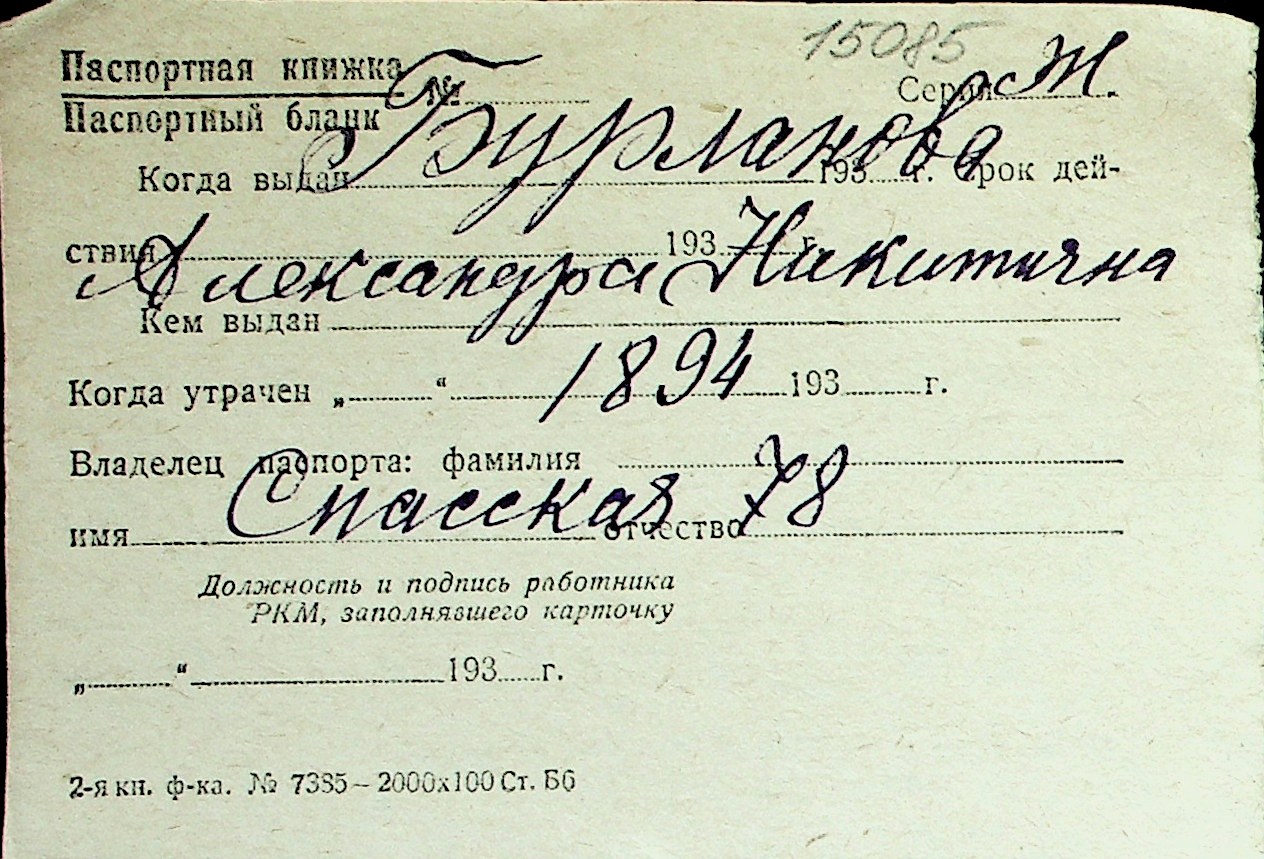 15085
Паспортная книжка № Серия Ж.
Паспортный бланк
Бурланова
Когда выдан 193 г. Срок дей-
ствия 193 г.
Александра Никитична
Кем выдан
1894
Когда утрачен „ “ 193 г.
Владелец паспорта: фамилия
Спасская 78
имя отчество
Должность и подпись работника
РКМ, заполнявшего карточку
„ “ 193 г.
2-я кн. ф-ка. № 7385—2000х100 Ст. Бб